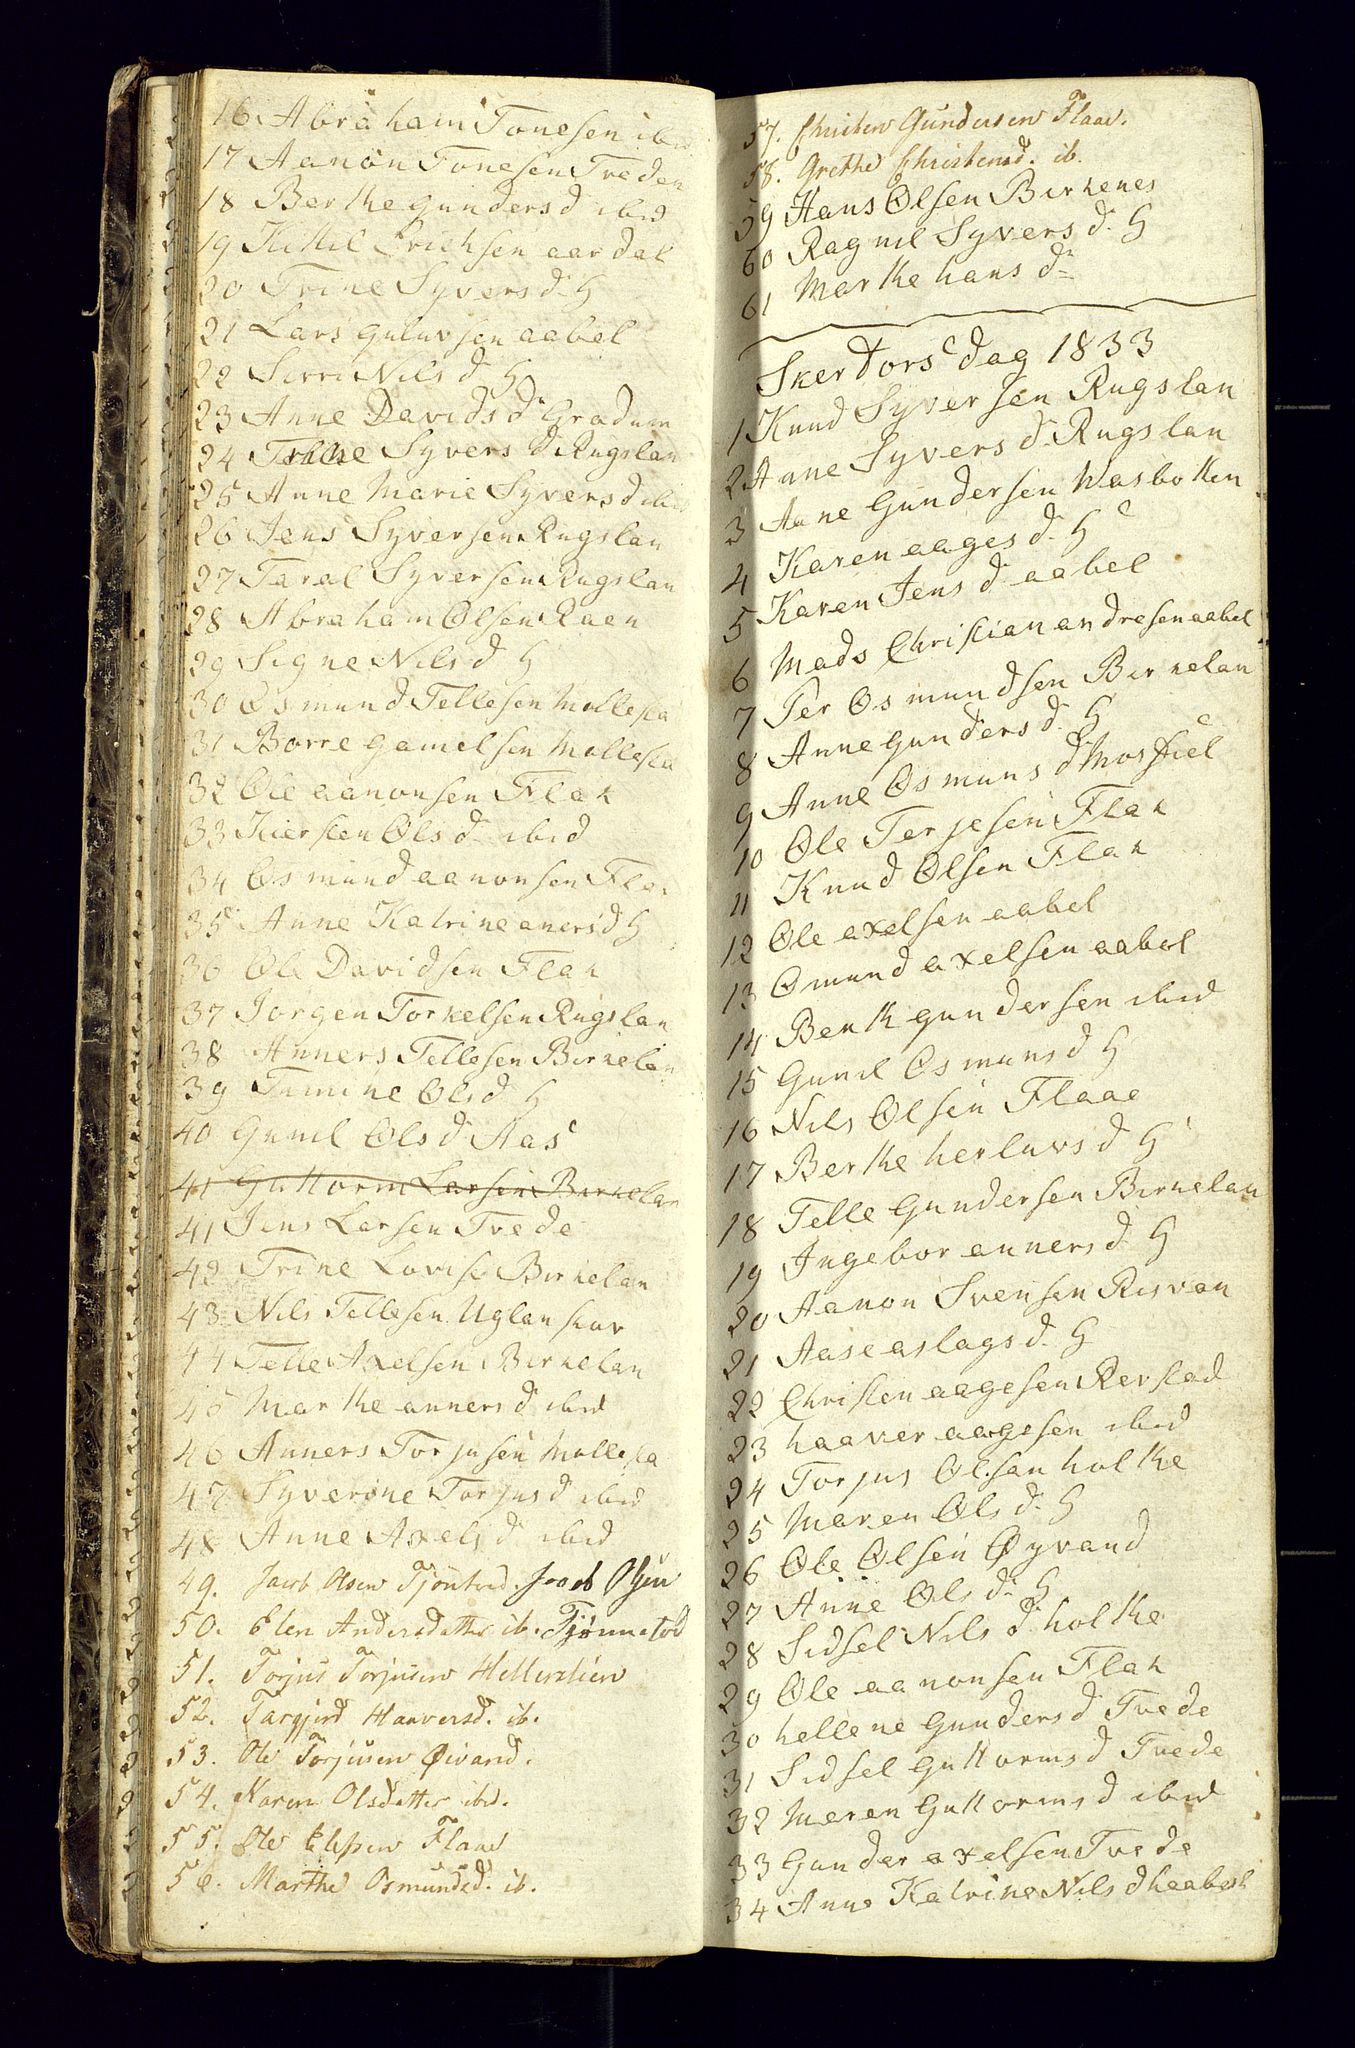 16 Abraham Tonesen ibid
17 Aanon Tonesen Treden
18 Berthe gunders d ibid
19 Kittil Erichsen aardal
20 Trine Syvers d. H
21 Lars guluvsen aabel
22 Sirri Nils d H
23 Anne Davids d Gradum
24 Syvers d Rugslan
25 Anne Marie Syvers d ibid
26 Jens Syversen Rugslan
27 Taral Syversen Rugslan
28 Abraham Olsen Raen
29 Signe Nils d H
30 Osmund Tellesen Mollesta
31 Borre gamelsen Mollesta
32 Ole aanonsen Flak
33 Kiersten Ols d ibid
34 Osmund aanonsen Flak
35 Anne Katrine aners d H
36 Ole Davidsen Flak
37 Jorgen Torkelsen Rugslan
38 Anners Tellesen Birkelan
39 Tumine Ols d H
40 Gunil Ols d Aas
41 Guttorm Larsen Birkelan
41 Jens Larsen Tvede
42 Trine Lovise Birkelan
43 Nils Tellesen Uglanskar
44 Telle Axelsen Birkelan
45 Marthe anners d ibid
46 Anners Torjusen Mollesta
47 Syverine Torjus d ibid
48 Anne Axels d ibid
49. Jacob Olsen Tjöntved. Jacob Olsen
50. Elen Andersdatter ib. Tjønnetød
51. Torjus Torjusen Hellerslien
52. Targjerd Haaversd. ib.
53. Ole Torjusen Øivand.
54. Karen Olsdatter ibid.
55. Ole Ellefsen Flaae
56. Marthe Osmundsd. ib.
57. Christen Gundersen Flaae.
58. Grethe Christensd. ib.
59 Hans Olsen Birkenes
60 Ragnil Syvers d. H
61 Marthe hans d
Skertorsdag 1833
1 Knud Syversen Rugslan
2 Anne Syvers d. Rugslan
3 Aane Gundersen Wasbotten
4 Karen aages d. H
5 Karen Jens d aabel
6 Mads Christian andresen aabel
7 Per Osmundsen Birkelan
8 Anne gunders d. H
9 Anne Osmuns d Mosfiel
10 Ole Terjesen Flak
11 Knud Olsen Flak
12 Ole axelsen aabel
13 Omund axelsen aabel
14 Benth gundersen ibid
15 Gunil Osmuns d H
16 Nils Olsen Flaae
17 Berthe herluvs d H
18 Telle Gundersen Birkelan
19 Ingebor anners d H
20 Aanon Svensen Risvan
21 Aase aslags d. H
22 Christen aagesen Rerstad
23 haaver aagesen ibid
24 Torjus Olsen holthe
25 Maren Ols d. H
26 Ole Olsen Øyvand
27 Anne Ols d. H
28 Sidsel Nils d. holthe
29 Ole aanonsen Flak
30 hellene Gunders d Tvede
31 Sidsel Guttorms d Tvede
32 Maren Guttorms d ibid
33 Gunder axelsen Tvede
34 Anne Katrine Nils d haabesl